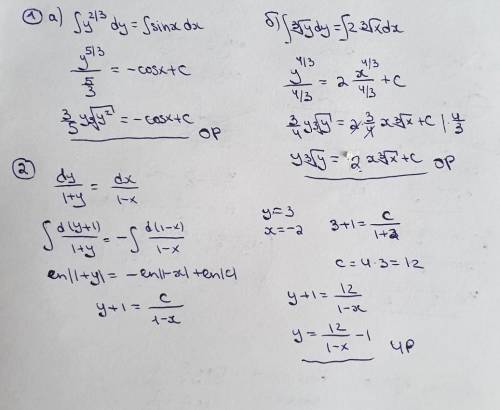 ① а) ∫y^{2/3} dy = ∫sinx dx
y^{5/3} / (5/3) = -cosx + C
3/5 y ∛(y²) = -cosx + C
ОР
б) ∫∛y dy = ∫2∛x dx
y^{4/3} / (4/3) = 2 x^{4/3} / (4/3) + C
3/4 y∛y = 2·3/4 x∛x + C | 4/3
y∛y = 2x∛x + C ОР
② dy/(1+y) = dx/(1-x)
∫ d(y+1)/(1+y) = -∫ d(1-x)/(1-x)
ln|1+y| = -ln|1-x| + ln|C|
y+1 = C/(1-x)
y=3
x=-2
3+1 = C/(1+2)
C = 4·3 = 12
y+1 = 12/(1-x)
y = 12/(1-x) - 1
ЧР